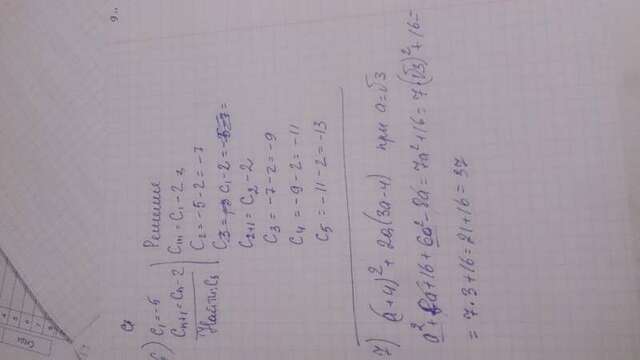 6) C₁=-5
Cₙ₊₁=Cₙ-2
Найти: C₅
Решение
C₁₊₁=C₁-2
C₂=-5-2=-7
C₂₊₁=C₂-2
C₃=-7-2=-9
C₄=-9-2=-11
C₅=-11-2=-13
7) (a+4)²+2a(3a-4) при a=√3
a²+8a+16+6a²-8a=7a²+16=7(√3)²+16=
=7·3+16=21+16=37